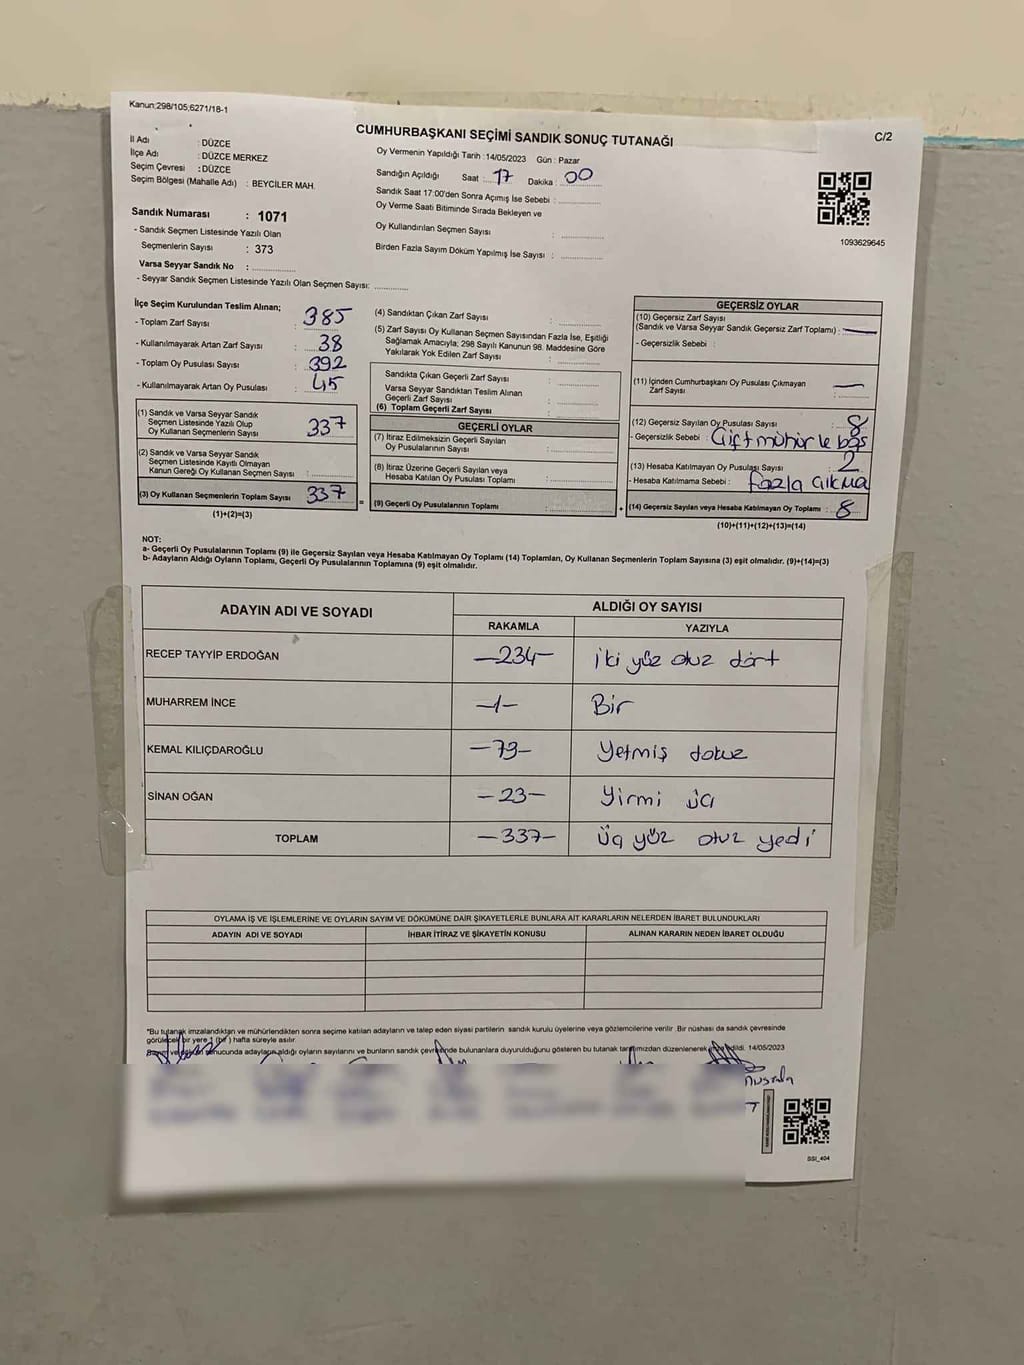 Kanun:298/105;6271/18-1
CUMHURBAŞKANI SEÇİMİ SANDIK SONUÇ TUTANAĞI
C/2
İl Adı : DÜZCE
İlçe Adı : DÜZCE MERKEZ
Seçim Çevresi : DÜZCE
Seçim Bölgesi (Mahalle Adı) : BEYCİLER MAH.
Oy Vermenin Yapıldığı Tarih :14/05/2023 Gün : Pazar
Sandığın Açıldığı Saat : 17 Dakika : 00
Sandık Saat 17:00'den Sonra Açımış İse Sebebi :
Oy Verme Saati Bitiminde Sırada Bekleyen ve
Oy Kullandırılan Seçmen Sayısı :
Birden Fazla Sayım Döküm Yapılmış İse Sayısı :
1093629645
Sandık Numarası : 1071
- Sandık Seçmen Listesinde Yazılı Olan
Seçmenlerin Sayısı : 373
Varsa Seyyar Sandık No :
- Seyyar Sandık Seçmen Listesinde Yazılı Olan Seçmen Sayısı:
İlçe Seçim Kurulundan Teslim Alınan;
- Toplam Zarf Sayısı : 385
- Kullanılmayarak Artan Zarf Sayısı : 38
- Toplam Oy Pusulası Sayısı : 392
- Kullanılmayarak Artan Oy Pusulası : 45
(1) Sandık ve Varsa Seyyar Sandık
Seçmen Listesinde Yazılı Olup
Oy Kullanan Seçmenlerin Sayısı : 337
(2) Sandık ve Varsa Seyyar Sandık
Seçmen Listesinde Kayıtlı Olmayan
Kanun Gereği Oy Kullanan Seçmen Sayısı :
(3) Oy Kullanan Seçmenlerin Toplam Sayısı : 337
(1)+(2)=(3)
(4) Sandıktan Çıkan Zarf Sayısı :
(5) Zarf Sayısı Oy Kullanan Seçmen Sayısından Fazla İse, Eşitliği
Sağlamak Amacıyla; 298 Sayılı Kanunun 98. Maddesine Göre
Yakılarak Yok Edilen Zarf Sayısı :
Sandıkta Çıkan Geçerli Zarf Sayısı :
Varsa Seyyar Sandıktan Teslim Alınan
Geçerli Zarf Sayısı :
(6) Toplam Geçerli Zarf Sayısı :
GEÇERLİ OYLAR
(7) İtiraz Edilmeksizin Geçerli Sayılan
Oy Pusulalarının Sayısı :
(8) İtiraz Üzerine Geçerli Sayılan veya
Hesaba Katılan Oy Pusulası Toplamı :
(9) Geçerli Oy Pusulalarının Toplamı :
GEÇERSİZ OYLAR
(10) Geçersiz Zarf Sayısı
(Sandık ve Varsa Seyyar Sandık Geçersiz Zarf Toplamı) :
- Geçersizlik Sebebi :
(11) İçinden Cumhurbaşkanı Oy Pusulası Çıkmayan
Zarf Sayısı :
(12) Geçersiz Sayılan Oy Pusulası Sayısı : 8
- Geçersizlik Sebebi : Çift mühür le bas
(13) Hesaba Katılmayan Oy Pusulası Sayısı : 2
- Hesaba Katılmama Sebebi : fazla çıkma
(14) Geçersiz Sayılan veya Hesaba Katılmayan Oy Toplamı : 8
(10)+(11)+(12)+(13)=(14)
NOT:
a- Geçerli Oy Pusulalarının Toplamı (9) ile Geçersiz Sayılan veya Hesaba Katılmayan Oy Toplamı (14) Toplamları, Oy Kullanan Seçmenlerin Toplam Sayısına (3) eşit olmalıdır. (9)+(14)=(3)
b- Adayların Aldığı Oyların Toplamı, Geçerli Oy Pusulalarının Toplamına (9) eşit olmalıdır.
ADAYIN ADI VE SOYADI
ALDIĞI OY SAYISI
RAKAMLA YAZIYLA
RECEP TAYYİP ERDOĞAN -234- iki yüz otuz dört
MUHARREM İNCE -1- Bir
KEMAL KILIÇDAROĞLU -79- Yetmiş dokuz
SİNAN OĞAN -23- Yirmi üç
TOPLAM -337- Üç yüz otuz yedi
OYLAMA İŞ VE İŞLEMLERİNE VE OYLARIN SAYIM VE DÖKÜMÜNE DAİR ŞİKAYETLERLE BUNLARA AİT KARARLARIN NELERDEN İBARET BULUNDUKLARI
ADAYIN ADI VE SOYADI İHBAR İTİRAZ VE ŞİKAYETİN KONUSU ALINAN KARARIN NEDEN İBARET OLDUĞU
*Bu tutanak imzalandıktan ve mühürlendikten sonra seçime katılan adayların ve talep eden siyasi partilerin sandık kurulu üyelerine veya gözlemcilerine verilir .Bir nüshası da sandık çevresinde
görülecek bir yere 1 (bir ) hafta süreyle asılır.
sonucunda adayların aldığı oyların sayılarını ve bunların sandık çevresinde bulunanlara duyurulduğunu gösteren bu tutanak tarafımızdan düzenlenerek imza edildi. 14/05/2023
SSI_404